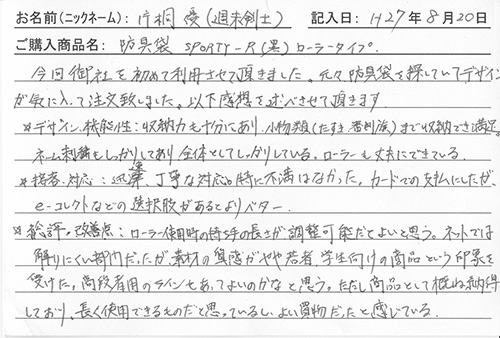 お名前(ニックネーム): 片桐 優(週末剣士) 記入日: H27年8月20日
ご購入商品名: 防具袋 SPORTY-R(黒)ローラータイプ.
今回御社を初めて利用させて頂きました。元々防具袋を探していてデザイン
が気に入って注文致しました。以下感想を述べさせて頂きます
*デザイン、機能性:収納力も十分にあり、小物類(たすき 審判旗)まで収納でき満足。
ネーム刺繍もしっかりしており全体としてしっかりしている。ローラーも丈夫にできている。
*接客、対応:迅速、丁寧な対応。特に不満はなかった。カードでの支払にしたが、
e-コレクトなどの選択肢があるとよりベター.
*総評・改善点:ローラー使用時の持ち手の長さが調整可能だとよいと思う。ネットでは
解りにくい部分だったが素材の質感がやや若者、学生向けの商品という印象を
受けた。高段者用のラインもあってよいのかなと思う。ただし商品として概ね納得
しており、長く使用できるものだと思っているし、よい買物だったと感じている.